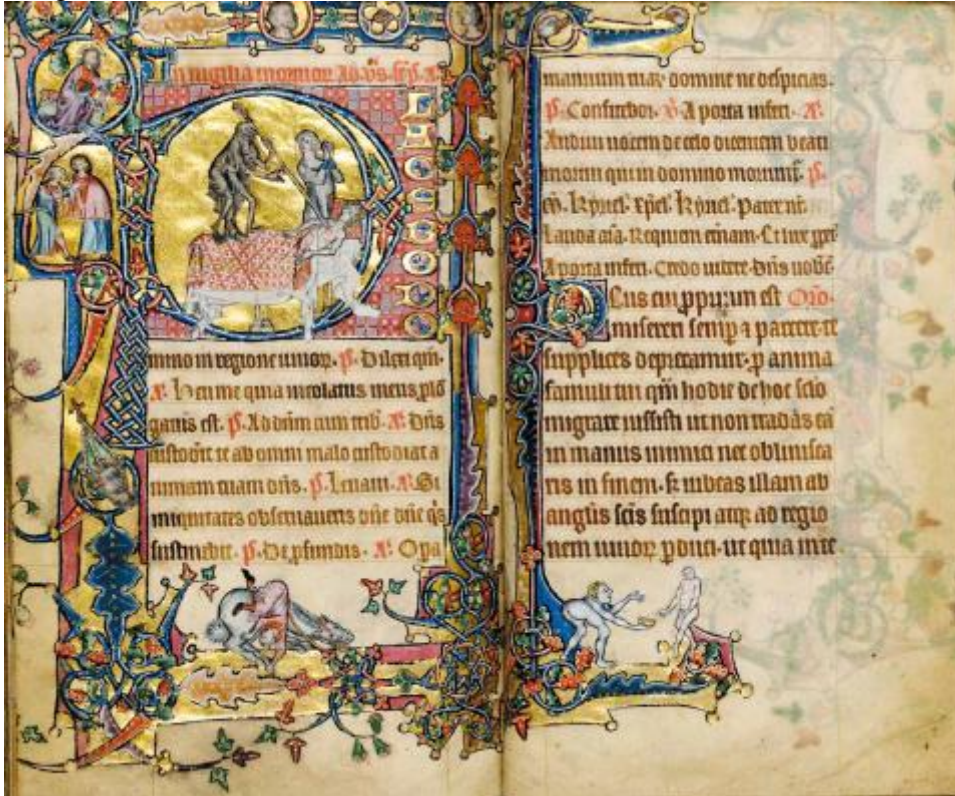 In vigilia mortuor. Ad v̄s. sp̄s. a.
mino in regione uiuoꝝ. p̄. Dilexi qm̄.
a. Heu me quia incolatus meus plō
gatus est. p̄. Ad dn̄m cum trib. a. Dn̄s
custodit te ab omni malo custodiat a
nimam tuam dn̄s. p̄. Leuaui. a. Si
iniquitates obseruaueris dn̄e dn̄e q̄s
sustinebit. p̄. De p̄fundis. a. Opa
manuum tuaꝝ domine ne despicias.
p̄. Confitebor. v. A porta inferi. a.
Audiui uocem de celo dicentem beati
mortui qui in domino moriunt᷑. p̄.
Kyriel. xp̄el. Kyriel. Pater nr̄.
Lauda aīa. Requiem et̄nam. Et lux ꝑpet̄
A porta inferi. Credo uidere. Dn̄s uobis̄.
eus cui ꝓpͥum est Oro.
misereri semꝑ ⁊ parcere te
supplices deprecamur. ꝑ anima
famuli tui qm̄ hodie de hoc sc̄lo
migrare iussisti ut non tradas eā
in manus inimici nec obliuisca
ris in finem. s; iubeas illam ab
angelis sc̄is suscipi atq; ad regio
nem uiuoꝝ ꝑduci. ut quia in te